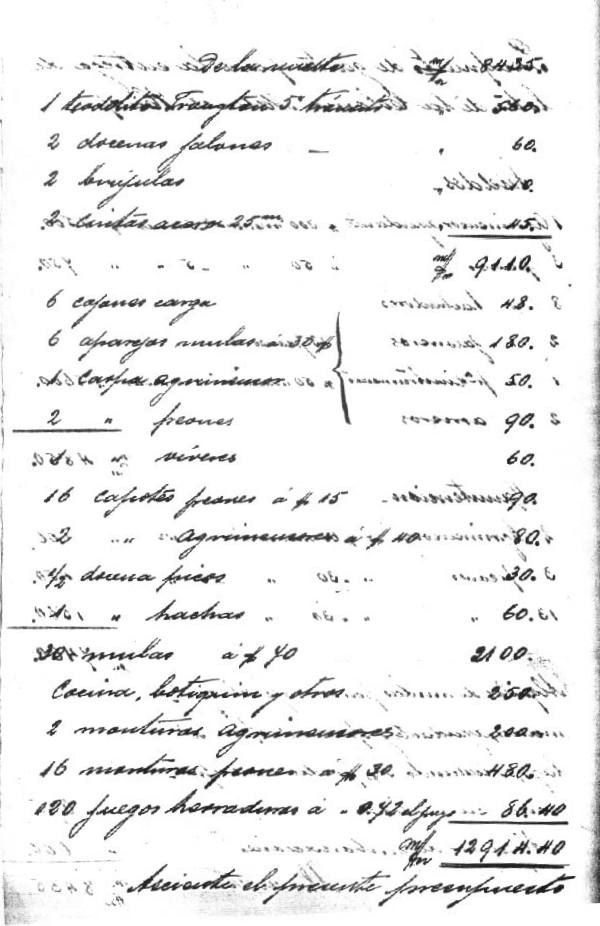 De la vuelta m/n 8435.
1 teodolito Trougton 5" tránsito 560.
2 docenas jalones — " 60.
2 brújulas
2 cintas acero 25 m 45.
m/n 9110.
6 cajones carga 48.
6 aparejos mulas á 30 $ 180.
1 carpa agrimensor 50.
2 " peones 90.
" víveres 60.
16 capotes peones á $ 15 90.
2 " agrimensores á $ 40 80.
1/2 docena picos 30.
" hachas 60.
30 mulas á $ 70 2100.
Cocina, botiquin y otros 250.
2 monturas agrimensores 200.
16 monturas peones á $ 30. 480.
120 juegos herraduras á " 0.72 el juego 86.40
m/n 12914.40
Asciende el presente presupuesto